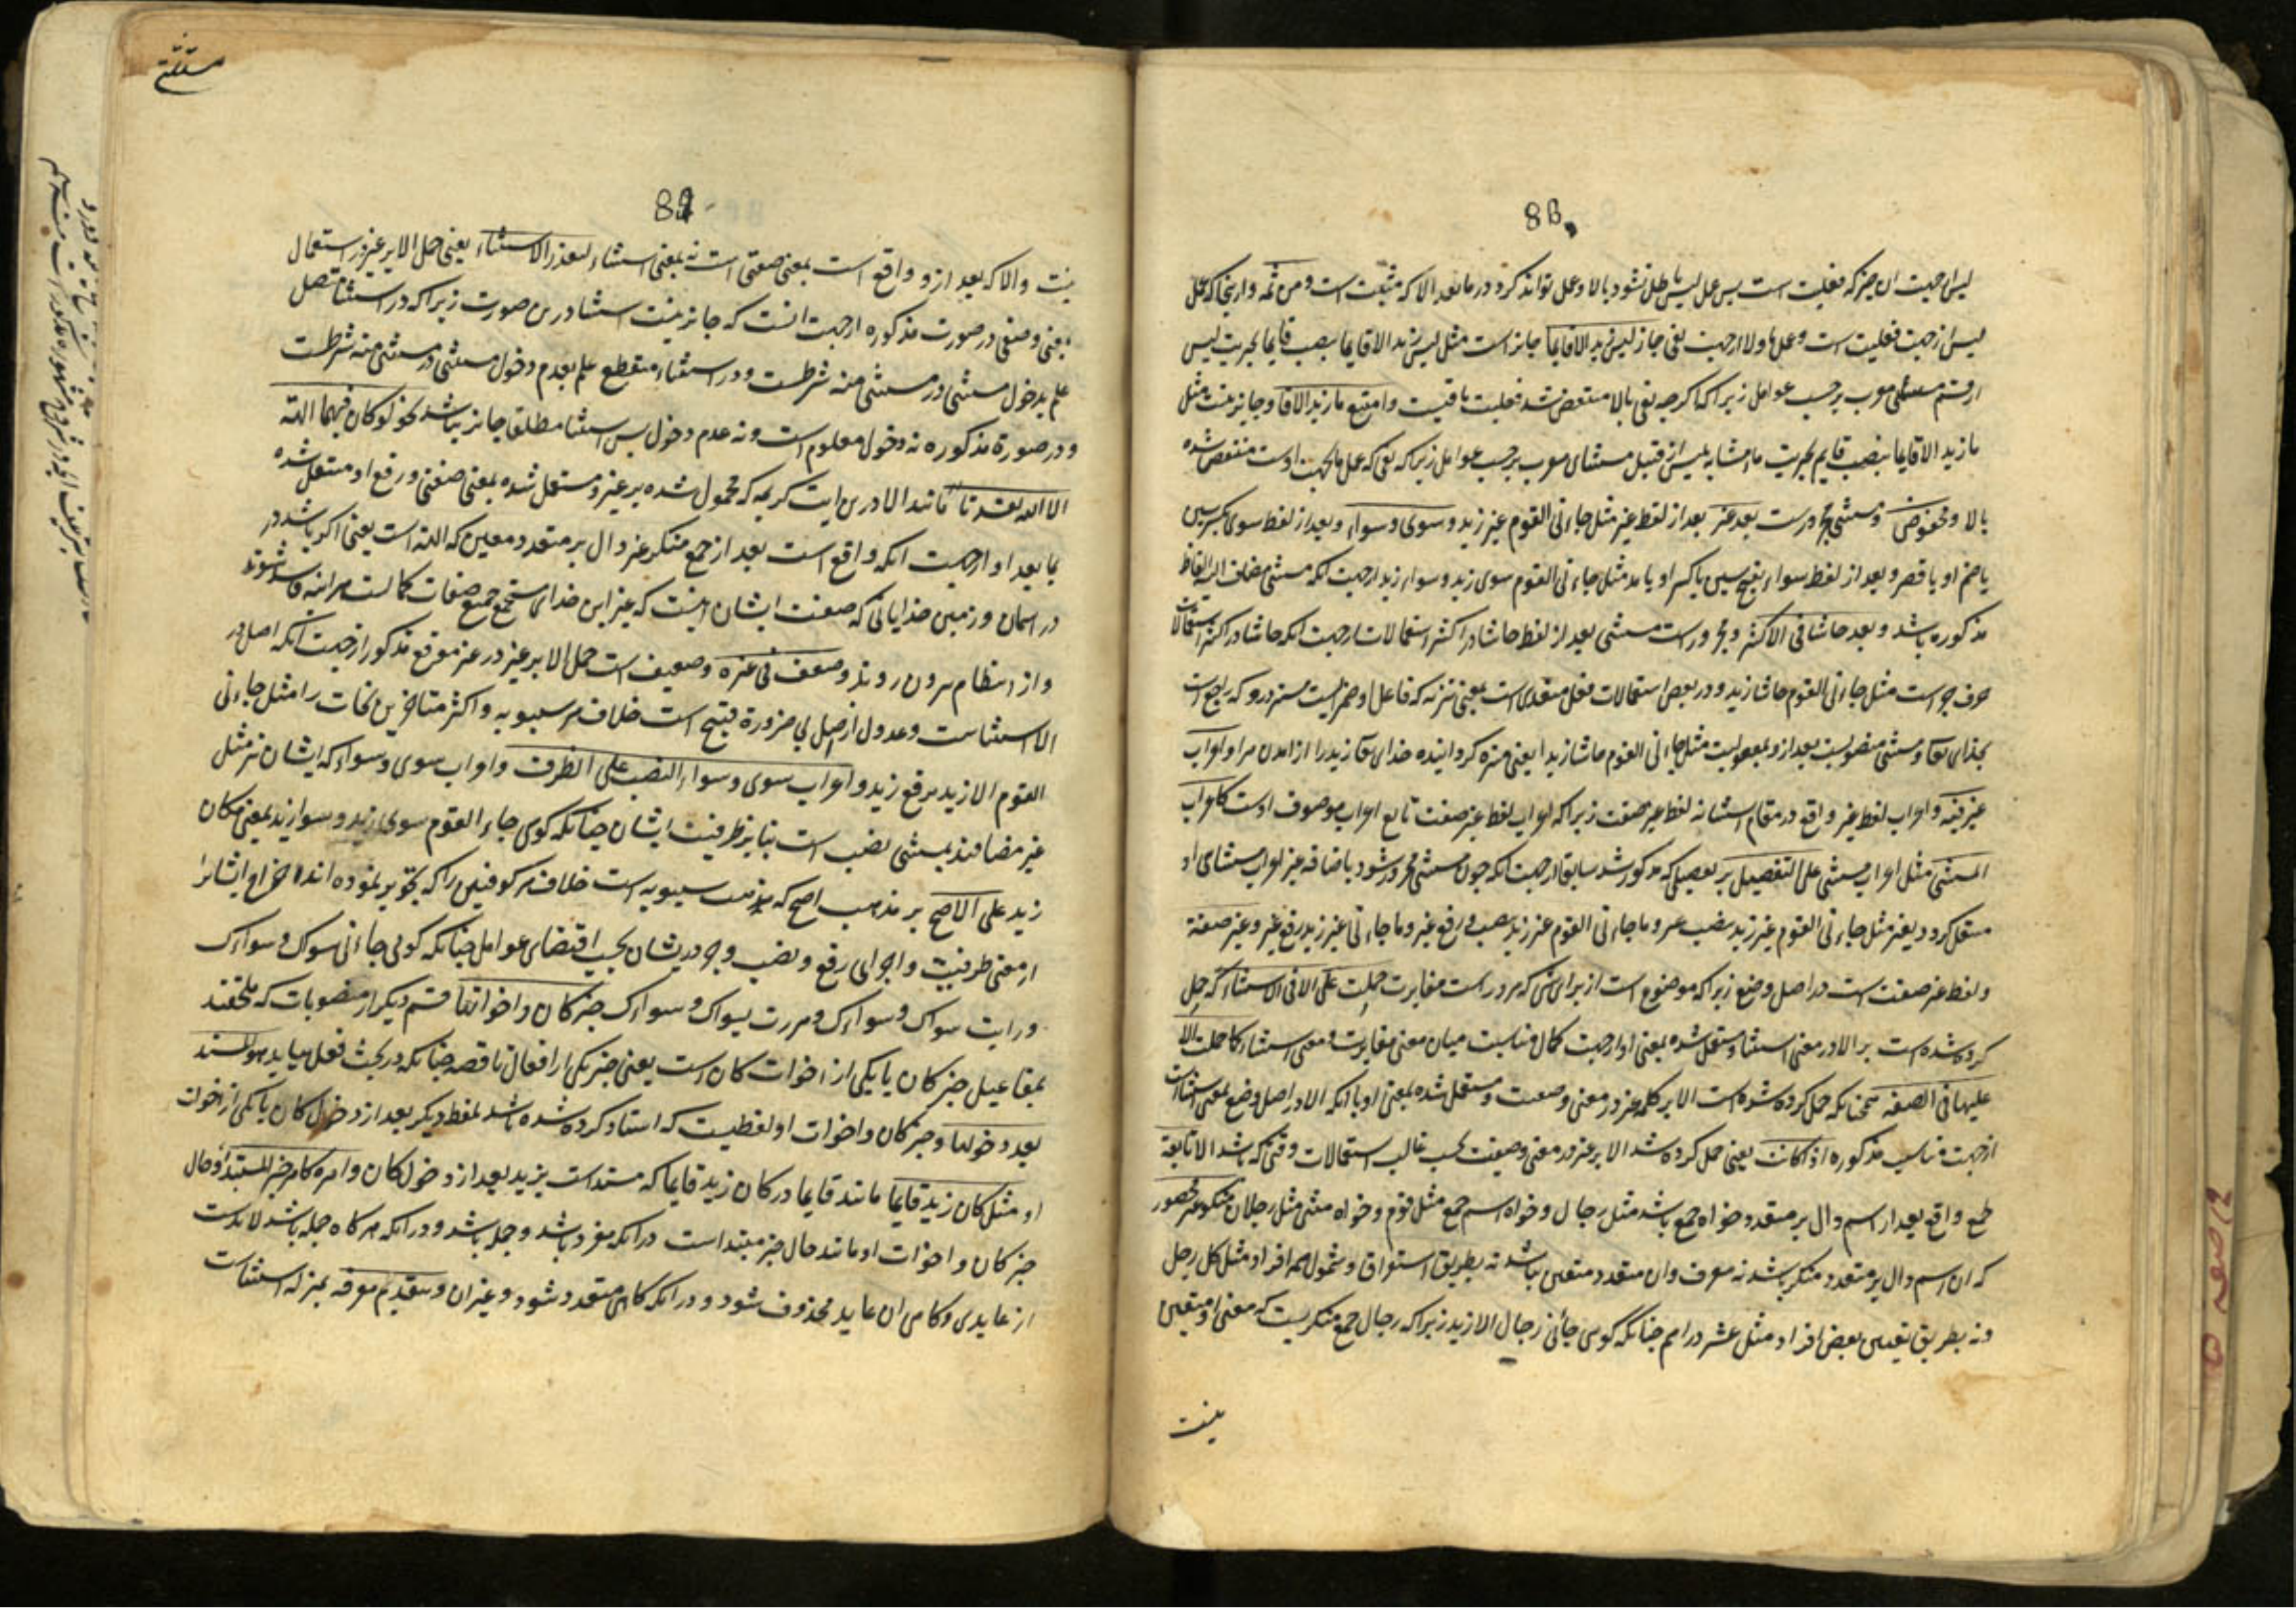 88
لیس از جهت ان چیز که فعلیت است پس عمل لیس باطل نشود بالا و عمل تواند کرد در ما بعد الا که مثبت است و من ثمه و از اینجا که عمل
لیس از جهت فعلیت است و عمل ما و لا از جهت نفی جاز لیس زید الا قایما جایز است مثل لیس زید الا قایما بنصب قایما بخبریت لیس
از قسم مستثنی معرب بر حسب عوامل زیرا که اگرچه نفی بالا منتقض شد فعلیت باقیست و امتنع ما زید الا قایما و جایز نیست مثل
ما زید الا قایما بنصب قایم بخبریت ما مشابه بلیس از قبیل مستثنای معرب بر حسب عوامل زیرا که نفی که عمل ما بجهت اوست منتقض شده
بالا و مخفوض و مستثنی مجرورست بعد غیر بعد از لفظ غیر مثل جاءنی القوم غیر زید و سوی و سواء و بعد از لفظ سوی بکسر سین
یا ضم او با قصر و بعد از لفظ سواء بفتح سین یا کسر او با مد مثل جاءنی القوم سوی زید و سواء زید از جهت انکه مستثنی مضاف الیه الفاظ
مذکوره باشد و بعد حاشا فی الاکثر و مجرورست مستثنی بعد از لفظ حاشا در اکثر استعمالات از جهت انکه حاشا در اکثر استعمالات
حرف جر است مثل جاءنی القوم حاشا زید و در بعض استعمالات فعل متعدی است بمعنی تنزیه که فاعل او ضمیریست مستتر درو که راجع است
بخدای تعالی و مستثنی منصوبست بعد ازو بمفعولیت مثل جاءنی القوم حاشا زیدا یعنی منزه گرداننده خدای تعالی زید را از امدن مرا و اعراب
غیر فیه و اعراب لفظ غیر واقع در مقام استثنا نه لفظ غیر صفت زیرا که اعراب لفظ غیر صفت تابع اعراب موصوف اوست کاعراب
المستثنی مثل اعراب مستثنی علی التفصیل بر تفصیلی که مذکور شد سابقا از جهت انکه چون مستثنی مجرور شود باضافه غیر اعراب مستثنای او
منتقل کردد بغیر مثل جاءنی القوم غیر زید بنصب غیر و ما جاءنی القوم غیر زید بنصب و رفع غیر و ما جاءنی غیر زید برفع غیر و غیر صفة
و لفظ غیر صفت است در اصل وضع زیرا که موضوع است از برای شی که درو است مغایرت حملت علی الا فی الاستثناء که حمل
کرده شده است بر الا در معنی استثنا و مستعمل شده بمعنی او از جهت کمال مناسبت میان معنی مغایرت و معنی استثناء کما حملت الا
علیها فی الصفة همچنانکه حمل کرده شده است الا بر کلمه غیر در معنی وصفیت و مستعمل شده بمعنی او با انکه الا در اصل وضع بمعنی استثناست
از جهت مناسب مذکوره اذا کانت یعنی حمل کرده شد الا بر غیر در معنی وصفیت بحسب غالب استعمالات وقتی که باشد الا تابعة
جمع واقع بعد از اسم دال بر متعدد خواه جمع باشد مثل رجال و خواه اسم جمع مثل قوم و خواه مثنی مثل رجلان منکور غیر محصور
که ان اسم دال بر متعدد منکر باشد نه معرف و ان متعدد متعین نباشد نه بطریق استغراق و شمول همه افراد مثل کل رجل
و نه بطریق تعیین بعض افراد مثل عشر دراهم چنانکه کوی جائنی رجال الا زید زیرا که رجال جمع منکریست که معنی او متعین
نیست
89
نیست و الا که بعد ازو واقع است بمعنی صفتی است نه بمعنی استثناء لتعذر الاستثناء یعنی حمل الا بر غیر در استعمال
بمعنی وصفی در صورت مذکوره از جهت انست که جایز نیست استثنا درین صورت زیرا که در استثنا متصل
علم بدخول مستثنی در مستثنی منه شرطست و در استثناء منقطع علم بعدم دخول مستثنی در مستثنی منه شرطست
و در صورة مذکوره نه دخول معلوم است و نه عدم دخول پس استثنا مطلقا جایز نباشد نحو لو کان فیهما الهة
الا الله لفسدتا مانند الا درین ایت کریمه که محمول شده بر غیر و مستعمل شده بمعنی صفتی و رفع او منتقل شده
بما بعد او از جهت انکه واقع است بعد از جمع منکر غیر دال بر متعدد معین که الهة است یعنی اگر باشد در
در اسمان و زمین خدایانی که صفت ایشان اینست که غیر این خدای مستجمع جمیع صفات کمالست هراینه فاسد شوند
و از انتظام بیرون روند و ضعف فی غیره و ضعیف است حمل الا بر غیر در غیر موقع مذکور از جهت انکه اصل در
الا استثناست و عدول از اصل بی ضرورة قبیح است خلاف مر سیبویه و اکثر متاخرین نحات را مثل جاءنی
القوم الا زید برفع زید و اعراب سوی و سواء النصب علی الظرف و اعراب سوی و سواء که ایشان نیز مثل
غیر مضافند بمستثنی نصب است بنابر ظرفیت ایشان چنانکه کوی جاء القوم سوی زید و سواء زید بمعنی مکان
زید علی الاصح بر مذهب اصح که مذهب سیبویه است خلاف مر کوفیین را که تجویز نموده اند اخراج ایشانرا
از معنی ظرفیت و اجرای رفع و نصب و جر در ایشان بحسب اقتضای عوامل چنانکه کوئی جاءنی سواک و سواءک
و رایت سواک و سواءک و مررت بسواک و سواءک خبر کان و اخواتها قسم دیکر از منصوبات که ملحقند
بمفاعیل خبر کان یا یکی از اخوات کان است یعنی خبر یکی از افعال ناقصه چنانکه در بحث فعل میاید هو المسند
بعد دخولها و خبر کان و اخوات او لفظیست که اسناد کرده شده باشد بلفظ دیکر بعد از دخول کان یا یکی از اخوات
او مثل کان زید قایما مانند قایما در کان زید قایما که مسند است بزید بعد از دخول کان و امره کامر خبر المبتدا و حال
خبر کان و اخوات او مانند حال خبر مبتداست در انکه مفرد باشد و جمله باشد و در انکه هر کاه جمله باشد لابدست
از عایدی و کاهی ان عاید محذوف شود و در انکه کاهی متعدد شود و غیر ان و یتقدم معرفه بمنزله استثناست